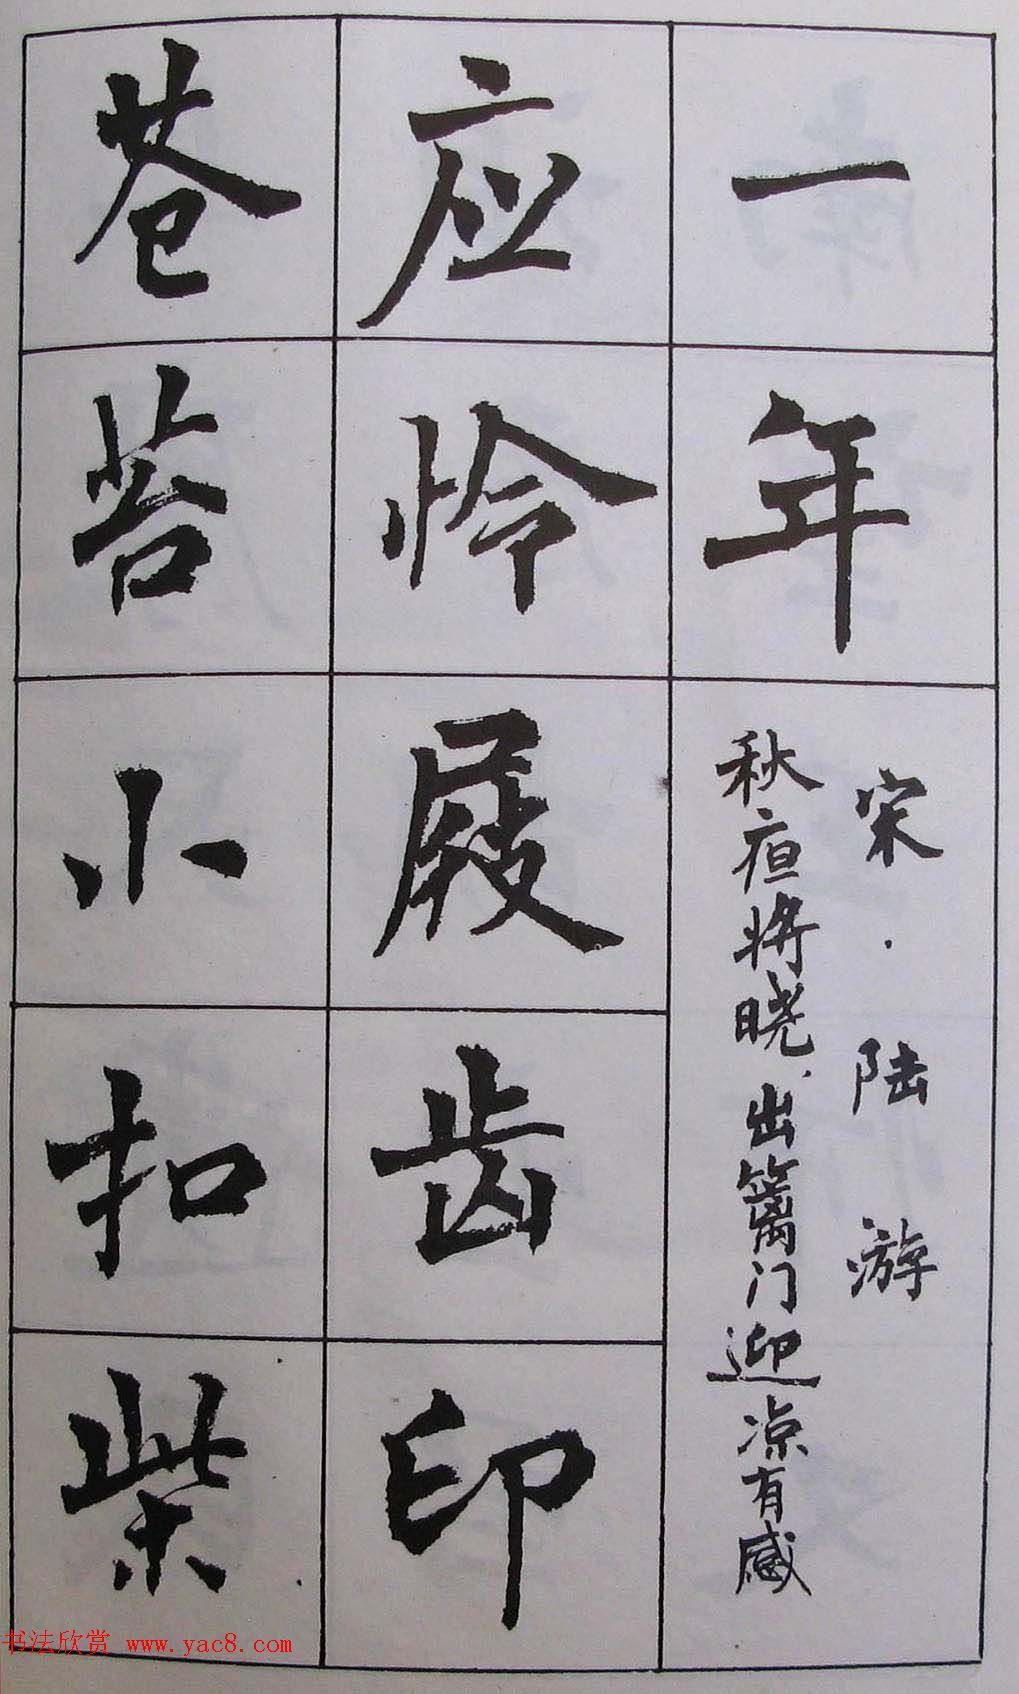 一年
宋·陆游
秋疸将晓、出篱门迎凉有感
应怜屐齿印
苍苔小扣柴
书法欣赏 www.yac8.com